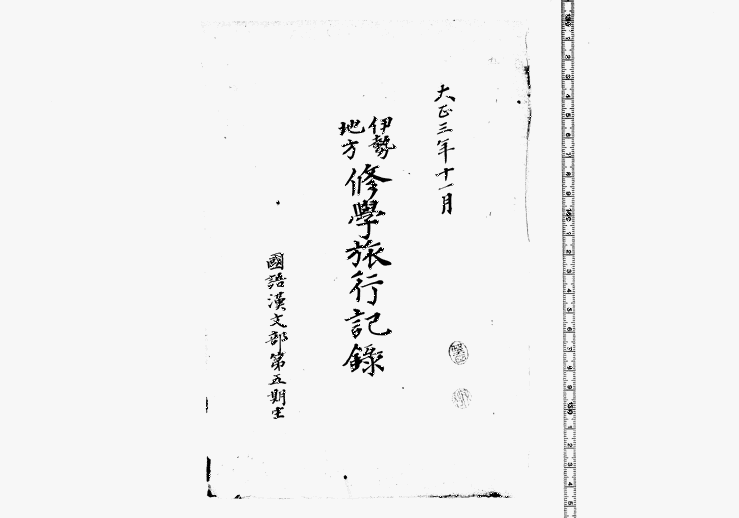 大正三年十一月
伊勢
地方
修學旅行記錄
國語漢文部第五期生